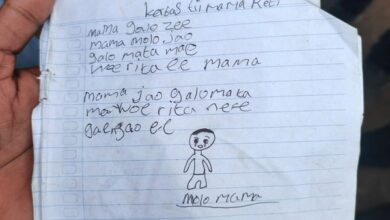 kertas tii mama Reti
mama galo zee
mama molo Jao
galo mata mae
woe rita ee mama
mama jao galo mata
ma woe rita ne'e
gae ngao e e
molo mama